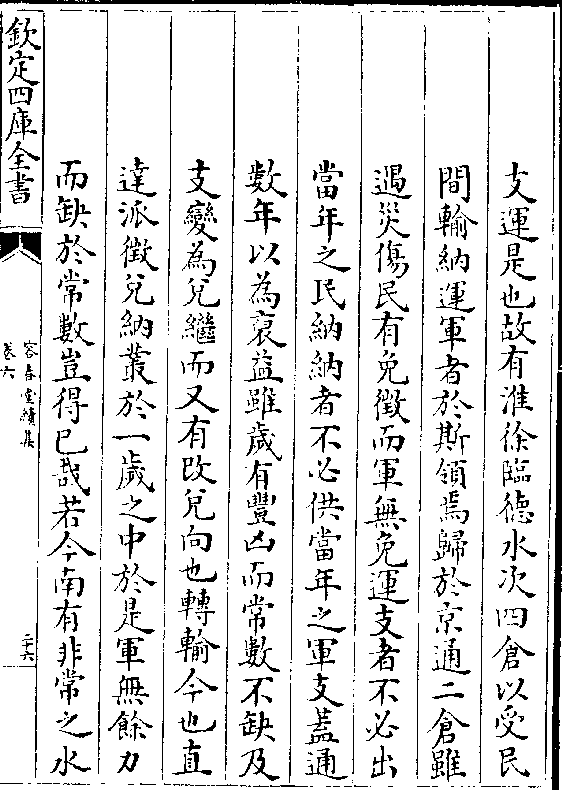 支運是也故有淮徐臨德水次四倉以受民
間輸納運軍者於斯領焉歸於京通二倉雖
遇災傷民有免徵而軍無免運支者不必出
當年之民納納者不必供當年之軍支蓋通
數年以為裒益雖歲有豐凶而常數不缺及
支變為兌繼而又有改兌向也轉輸今也直
達派徵兌納叢於一歲之中於是軍無餘力
而缺於常數豈得已哉若今南有非常之水
欽定四庫全書
容春堂續集
卷六
二十六